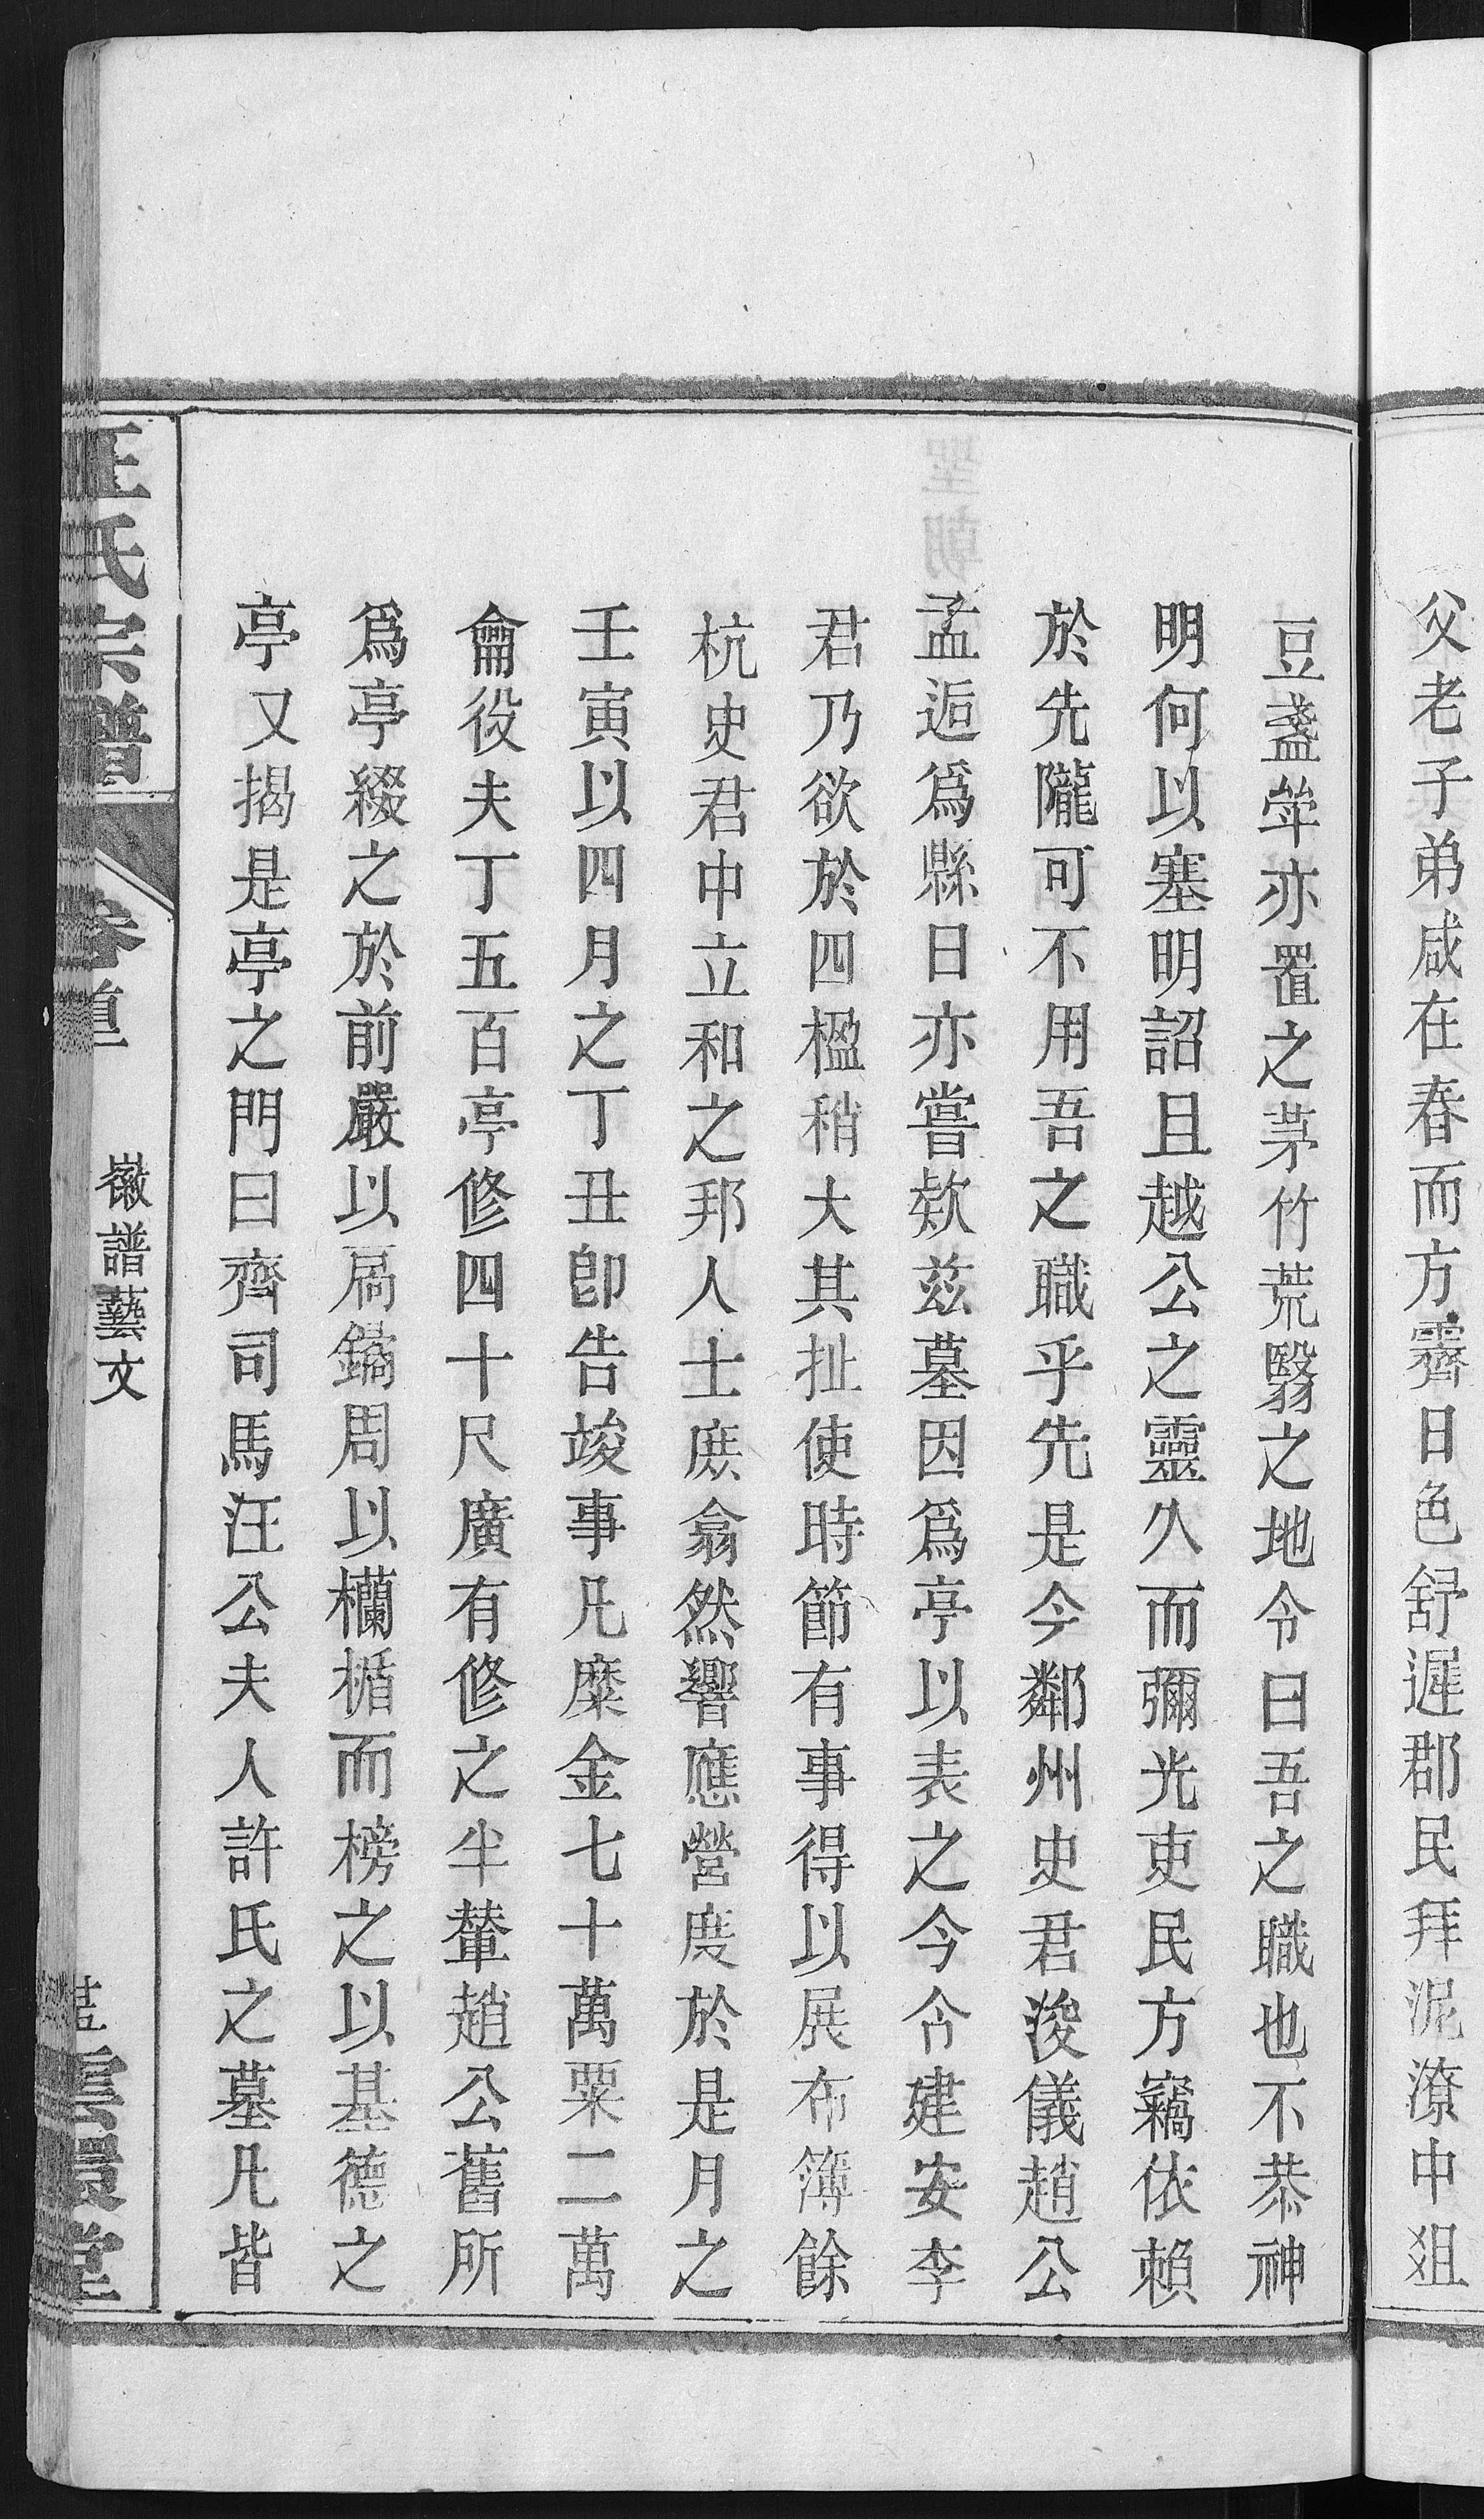 父老子弟咸在春而方霽日色舒遲郡民拜泥潦中俎
豆盞斝亦置之茅竹荒翳之地令曰吾之職也不恭神
明何以塞明詔且越公之靈久而彌光吏民方竊依賴
於先隴可不用吾之職乎先是今鄰州史君浚儀趙公
孟逅爲縣日亦嘗欵兹墓因爲亭以表之今令建安李
君乃欲於四楹稍大其扯使時節有事得以展布簿餘
杭史君中立和之邦人士庶翕然響應營度於是月之
壬寅以四月之丁丑卽告竣事凡糜金七十萬粟二萬
龠役夫丁五百亭修四十尺廣有修之半輦趙公舊所
爲亭綴之於前嚴以扃鐍周以欄楯而榜之以基德之
亭又揭是亭之門曰齊司馬汪公夫人許氏之墓凡皆
汪氏宗譜
卷首
徽譜藝文
雲環堂